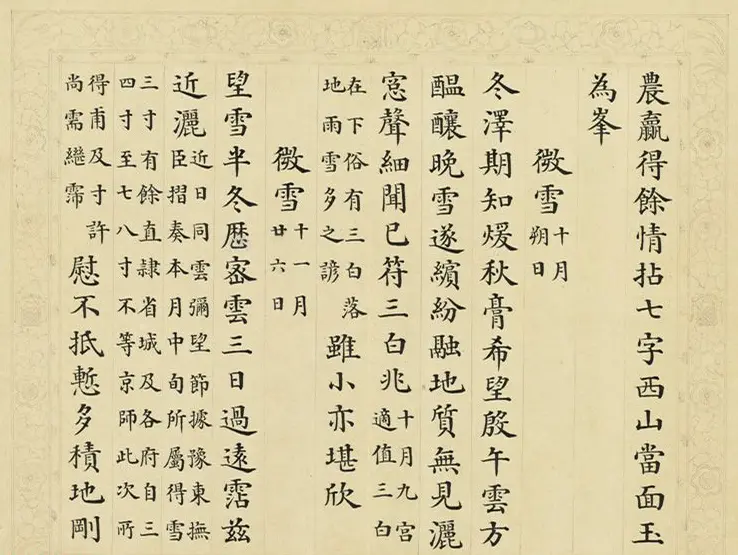 農贏得餘情拈七字西山當面玉
為峯
微雪十月朔日
冬澤期知煖秋膏希望殷午雲方
醖釀晚雪遂繽紛融地質無見灑
窓聲細聞已符三白兆十月九宮適值三白
在下俗有三白落地雨雪多之諺雖小亦堪欣
微雪十一月廿六日
望雪半冬歴宻雲三日過逺霑兹
近灑近日同雲彌望節據豫東撫臣摺奏本月中旬所屬得雪
三寸有餘直隷省城及各府自三四寸至七八寸不等京師此次所
得甫及寸許尚需繼霈慰不抵慙多積地剛